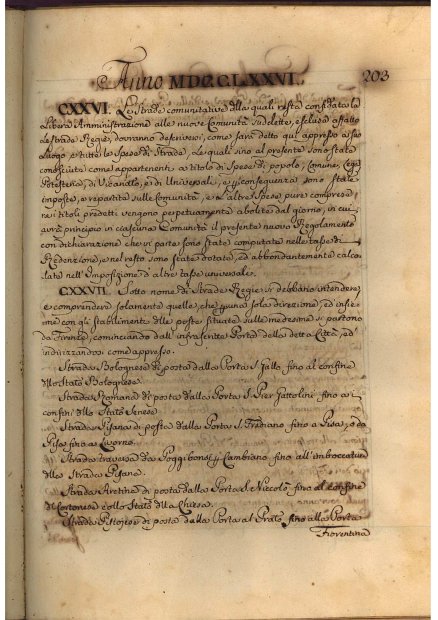 Anno MDCCLXXVI.
203
CXXVI. Le Strade comunitative dlla quali resta confidata la
Libera Amministrazione alle nuove Comunità suddette, escluse affatto
le strade Regie, dovranno descriversi, come sarà detto qui appresso a suo
Luogo e tutte le Spese di Strade, le quali sino al presente sono state
considerate come appartenenti a titolo di Spese di popolo, Comune, Lega
Potesteria, di Vicariato, e di Universali, e p conseguenza sono state
imposte, e repartite sulle Comunità, e altre Spese pure comprese
ne i titoli predetti vengono perpetuamente abolite dal giorno, in cui
avrà principio in ciascuna Comunità il presente nuovo Regolamento
con dichiarazione che in parte sono state computate nelle tasse di
Redenzione, e nel resto sono state dotate, ed abbondantemente calco
late nell'Imposizione d'altre tasse universali.
CXXVII. Sotto nome di Strade Regie si debbano intendere,
e comprendere solamente quelle, che p una sola direzione, ed insie
me con gli stabilimenti dlle poste situate sulle medesime si partono
da Firenze, cominciando dall'infrascritte Porte della detta Città, ed
indirizzandosi come appresso.
Strada Bolognese di posta dalla Porta S. Gallo fino al confine
dllo Stato Bolognese.
Strada Romana di posta dalla Porta S. Pier Gattolini fino a i
confini dllo Stato Senese
Strada Pisana di posta dalla Porta S. Frediano fino a Pisa, e da
Pisa fino a Livorno.
Strada traversa da Poggibonsi p Cambiano fino all'imboccatura
dlla Strada Pisana.
Strada Aretina di posta dalla Porta S. Niccolò fino al confine
di Cortonese collo Stato dlla Chiesa.
Strada Pistojese di posta dalla Porta al Prato fino alla Porta
Fiorentina